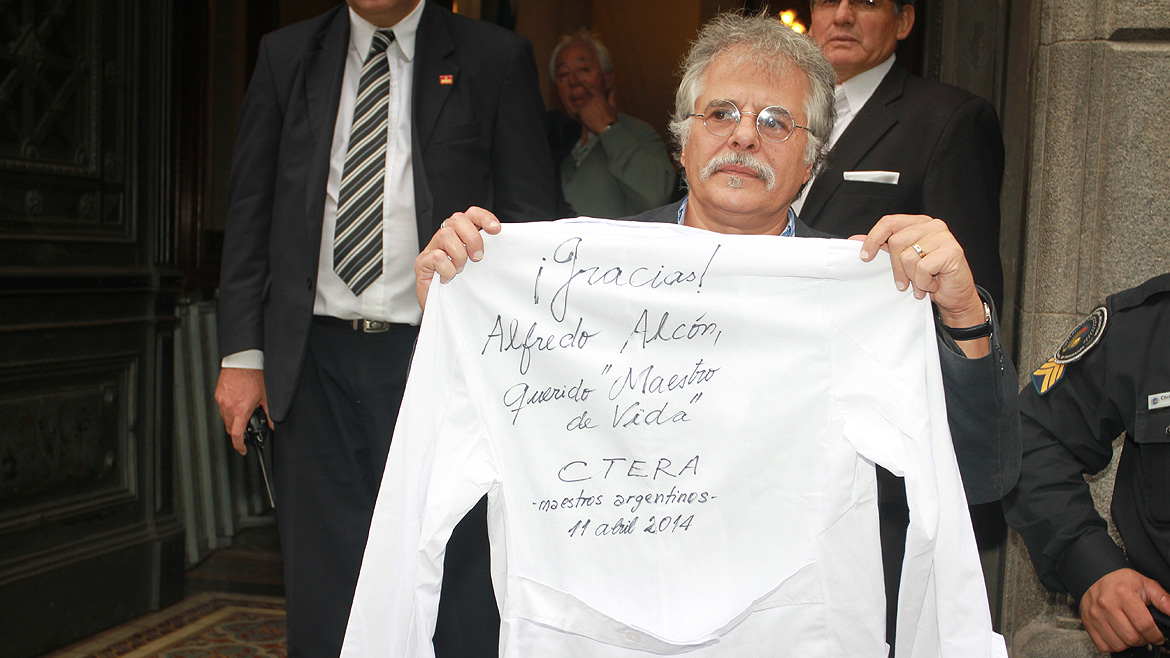 ¡Gracias!
Alfredo Alcón,
querido "Maestro
de Vida"
CTERA
-maestros argentinos-
11 abril 2014